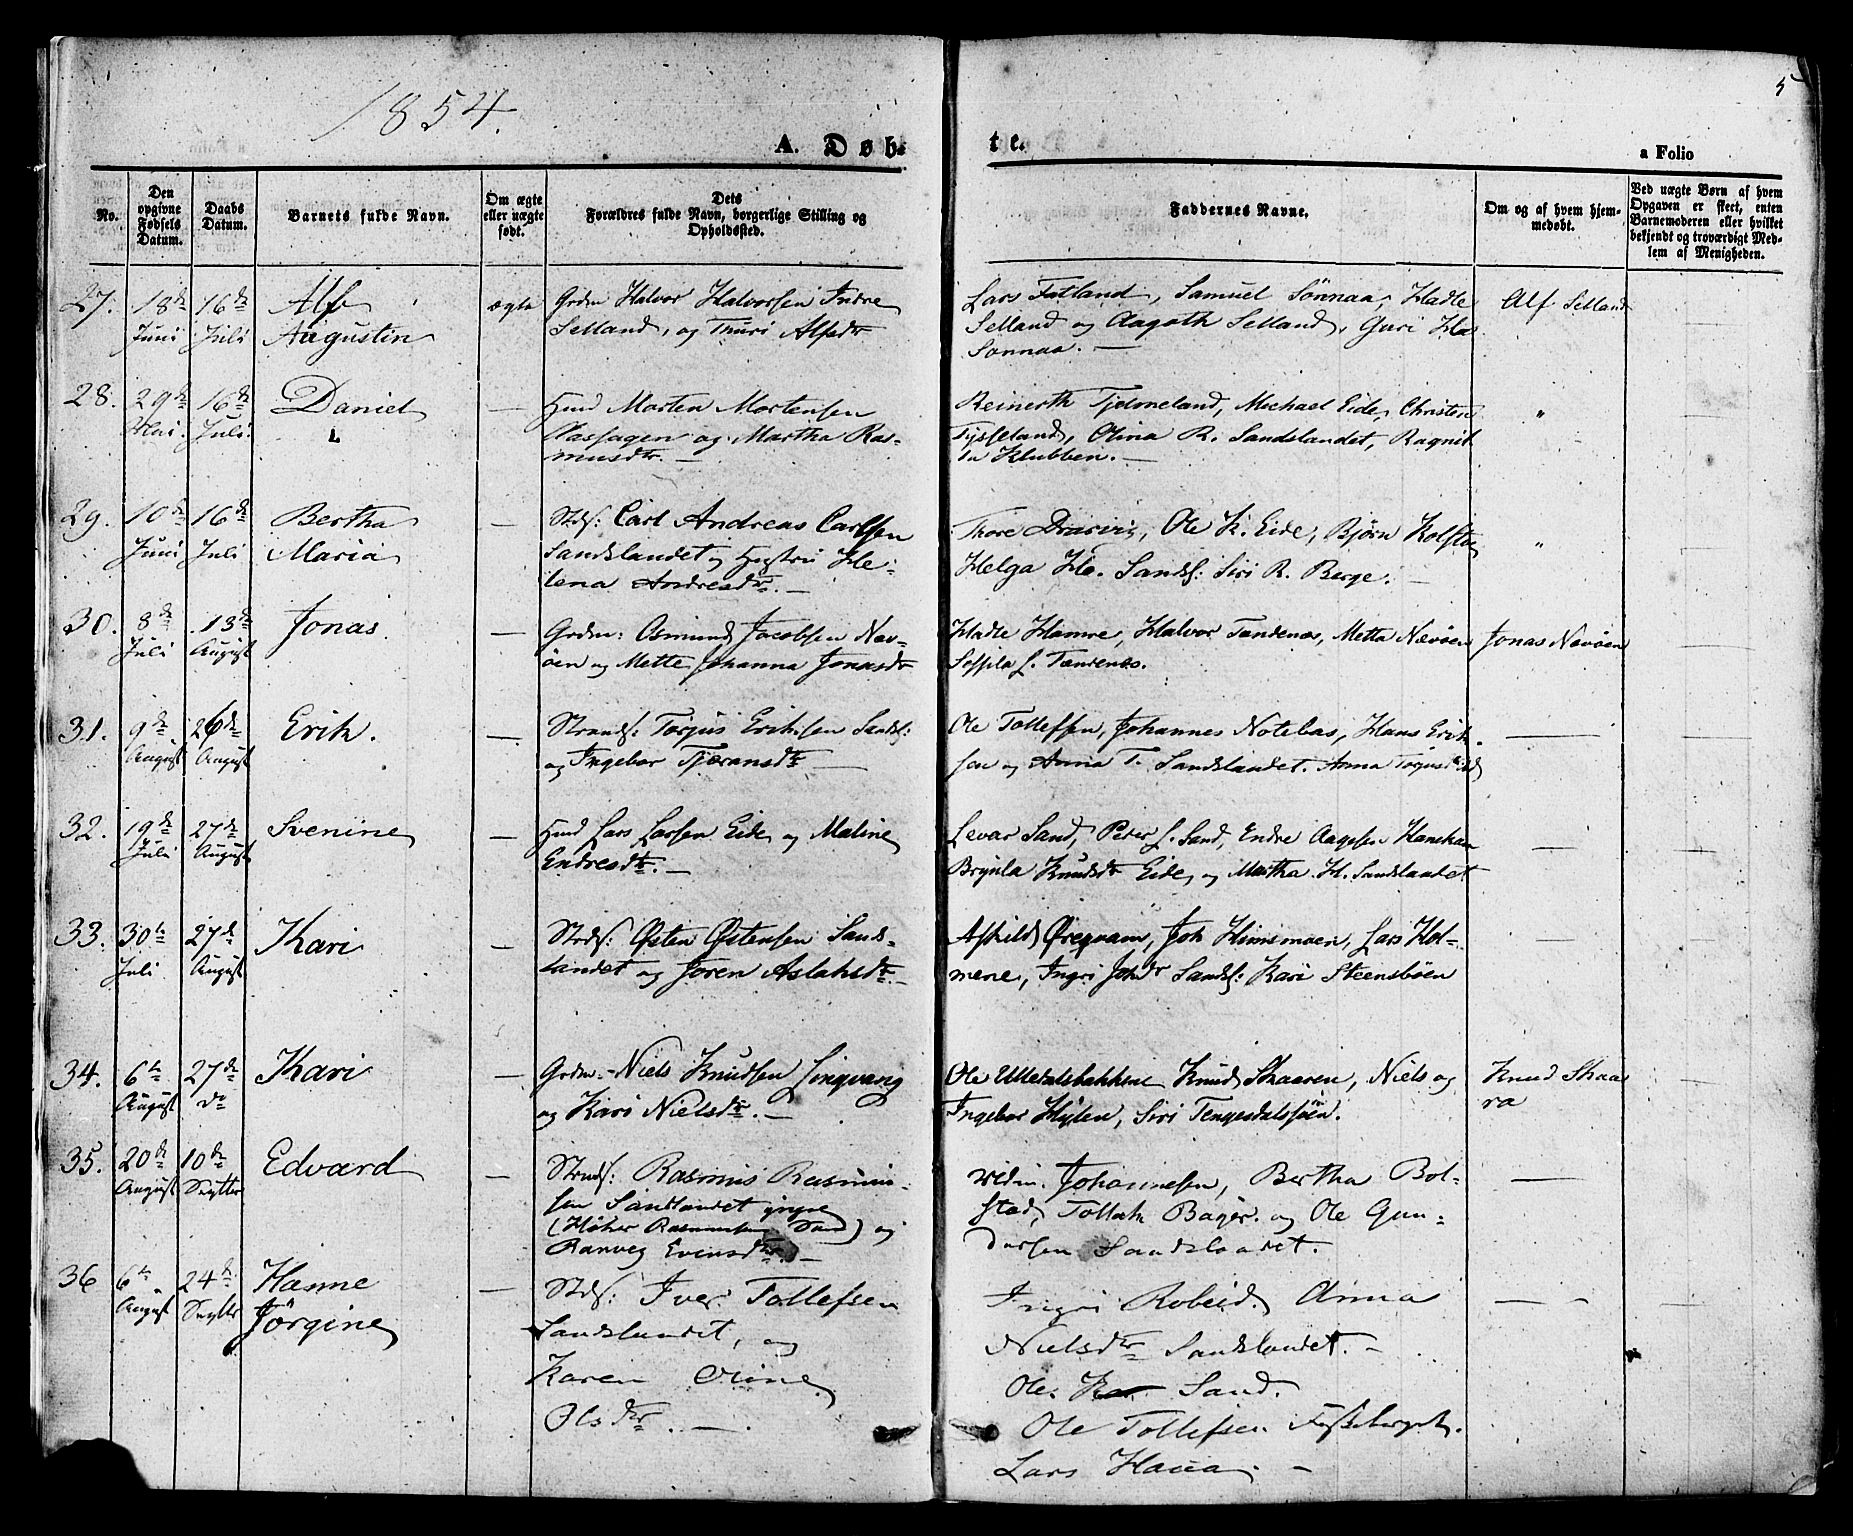 1854.
5
A. Døb-
te.
a Folio
No.
Den opgivne Fødsels Datum.
Daabs Datum.
Barnets fulde Navn.
Om ægte eller uægte født.
Dets Forældres fulde Navn, borgerlige Stilling og Opholdssted.
Faddernes Navne.
Om og af hvem hjemmedøbt.
Ved uægte Børn af hvem Opgaven er skeet, enten Barnemoderen eller hvilket bekjendt og troværdigt Medlem af Menigheden.
27. 18de Juni 16de Juli Alf Augustin ægte
Grdm Halvor Halvorsen Indre
Selland, og Thuri Alfsdtr
Lars Fatland, Samuel Sönnaa, Hadle
Selland og Aagoth Selland, Guri
Sönnaa. —
Alf Selland
28. 29de Mai. 16de Juli. Daniel —
Hmd Morten Mortensen
og Martha Ras-
musdtr. —
Reinerth Tjelmeland, Michael Eide, Christen
Tysseland, Olina R. Sandslandet, Ragnil
Klubben. —
"
29. 10de Juni 16de Juli Bertha Maria —
Strds: Carl Andreas Carlsen
Sandslandet og Hustru He-
lena Andresdtr. —
Thore Drarvig, Ole K. Eide, Björn
Helga H. Sandsl: Siri R. Berge. —
"
30. 8de Juli 13de August Jonas. —
Grdm: Osmund Jacobsen Nav-
öen og Mette Johanna Jonasdtr
Hadle Hamre, Halvor Tandenes, Metta Navöen
L. Tandenes.
Jonas Navöen
31. 9de August 26de August Erik. —
Strands: Torjus Eriksen Sandsl:
og Ingebor Tjeransdtr —
Ole Tollefsen, Johannes Notebas, Hans Erik-
sen og Anna T. Sandslandet. Anna
—
32. 19de Juli 27de August Svenine —
Hmd Lars Larsen Eide og Maline
Endresdtr. —
Levar Sand, Peter L. Sand, Endre Aagesen
Brynla Knudsdtr Eide, og Martha H. Sandslandet
—
33. 30te Juli 27de August Kari —
Strds: Østen Østensen Sands-
landet og Joren Aslaksdtr. —
Askild Øregvam, Joh Himsmoen, Lars Hol-
mene, Ingri Sandsl: Kari Steensböen
—
34. 6te August 27de do Kari —
Grdm: Niels Knudsen Lingvang
og Kari Nielsdtr. —
Ole Ulledalsbakken Knud Skaaren, Niels og
Ingebor Hylen, Siri Tengesdalssöen.
Knud Skaa
ra
35. 20de August 10de Septbr Edvard —
Strds: Rasmus Rasmus-
sen Sandslandet yngre
Rasmussen Sand) og
Ranveg Evensdtr. —
Johannesen, Bertha Bol-
stad, Tollak og Ole Gun-
dersen Sandslandet.
—
36 6te August 24de Septbr Hanne Jørgine —
Strds: Iver Tollefsen
Sandslandet, og
Karen Oline
Olsdtr. —
Ingri Anna
Nielsdtr Sandslandet. —
Ole Sand.
Ole Tollefsen
Lars —
— —